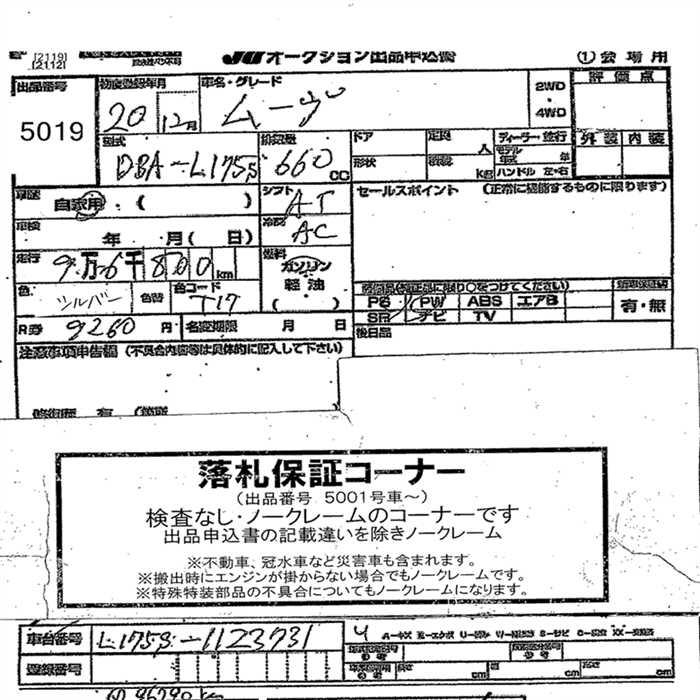 [2119]
[2112]
JU オークション出品申込書 ①会場用
出品番号 初度登録年月 車名・グレード 評価点
5019 20 12月 ムーヴ 2WD・4WD
型式 排気量 ドア 定員 人 ディーラー・並行 外装 内装
DBA-L175S 660 CC 形状 積載 kg モデル年式 年
ハンドル 左・右
車歴 自家用・( ) シフト AT セールスポイント (正常に機能するものに限ります)
車検 年 月( 日) 冷房 AC
走行 9万6千800km 燃料 ガソリン 軽油 ( )
色 シルバー 色替 色コード T17
PS PW ABS エアB 有・無
SR ナビ TV
R券 9260円 名変期限 月 日 後日品
注意事項申告欄 (不具合内容等は具体的に記入して下さい)
修復歴 有 (箇所
落札保証コーナー
(出品番号 5001号車～)
検査なし・ノークレームのコーナーです
出品申込書の記載違いを除きノークレーム
※不動車、冠水車など災害車も含まれます。
※搬出時にエンジンが掛からない場合でもノークレームです。
※特殊特装部品の不具合についてもノークレームになります。
車台番号 L175S-1123731
登録番号 長さ cm 幅 cm 高さ cm